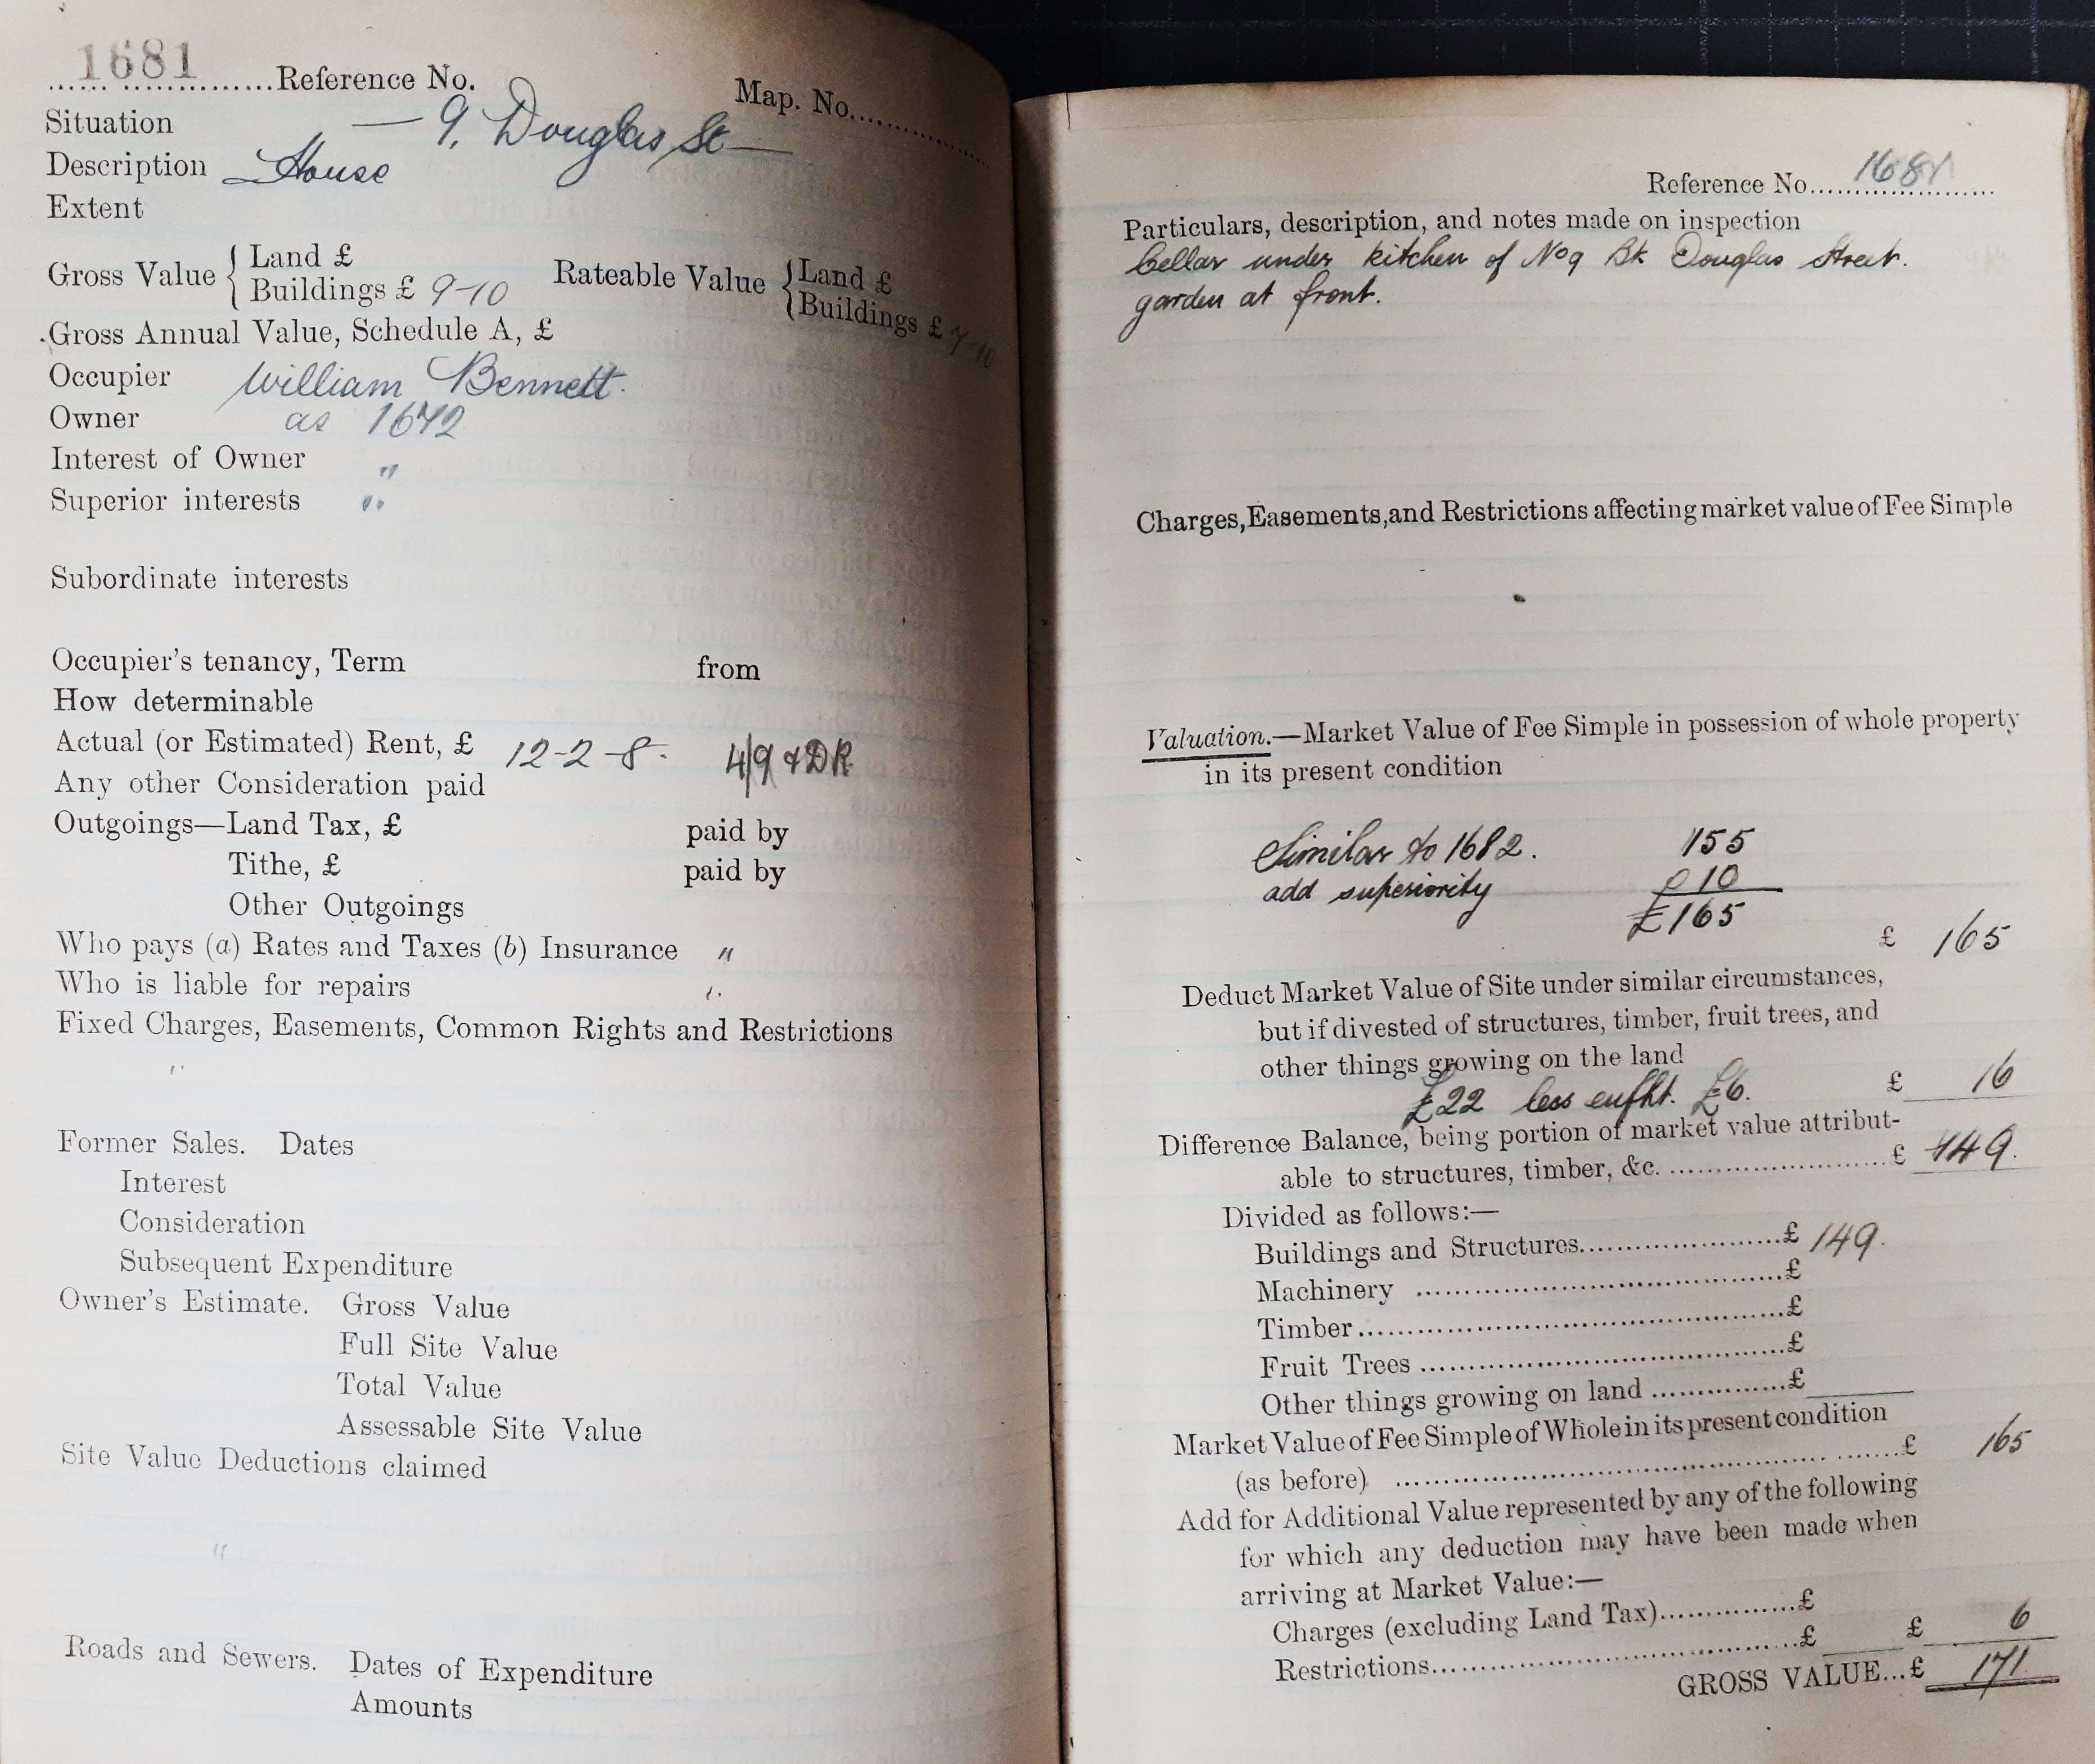 1681 Reference No.
Map. No.
Situation — 9, Douglas St —
Description House
Extent
Gross Value { Land £
Buildings £ 9-10
Rateable Value { Land £
Buildings £ 7-10
Gross Annual Value, Schedule A, £
Occupier William Bennett.
Owner as 1672
Interest of Owner "
Superior interests "
Subordinate interests
Occupier's tenancy, Term from
How determinable
Actual (or Estimated) Rent, £ 12-2-8. 4/9 & DR
Any other Consideration paid
Outgoings—Land Tax, £ paid by
Tithe, £ paid by
Other Outgoings
Who pays (a) Rates and Taxes (b) Insurance "
Who is liable for repairs "
Fixed Charges, Easements, Common Rights and Restrictions
"
Former Sales. Dates
Interest
Consideration
Subsequent Expenditure
Owner's Estimate. Gross Value
Full Site Value
Total Value
Assessable Site Value
Site Value Deductions claimed
"
Roads and Sewers. Dates of Expenditure
Amounts
Reference No. 1681
Particulars, description, and notes made on inspection
Cellar under kitchen of No 9 Bk Douglas Street.
garden at front.
Charges, Easements, and Restrictions affecting market value of Fee Simple
Valuation.—Market Value of Fee Simple in possession of whole property
in its present condition
Similar to 1682. 155
add superiority 10
£165
£ 165
Deduct Market Value of Site under similar circumstances,
but if divested of structures, timber, fruit trees, and
other things growing on the land
£22 less £6. £ 16
Difference Balance, being portion of market value attribut-
able to structures, timber, &c. £ 149.
Divided as follows:—
Buildings and Structures £ 149.
Machinery £
Timber £
Fruit Trees £
Other things growing on land £
Market Value of Fee Simple of Whole in its present condition
(as before) £ 165
Add for Additional Value represented by any of the following
for which any deduction may have been made when
arriving at Market Value:—
Charges (excluding Land Tax) £
Restrictions £ £ 6
GROSS VALUE...£ 171